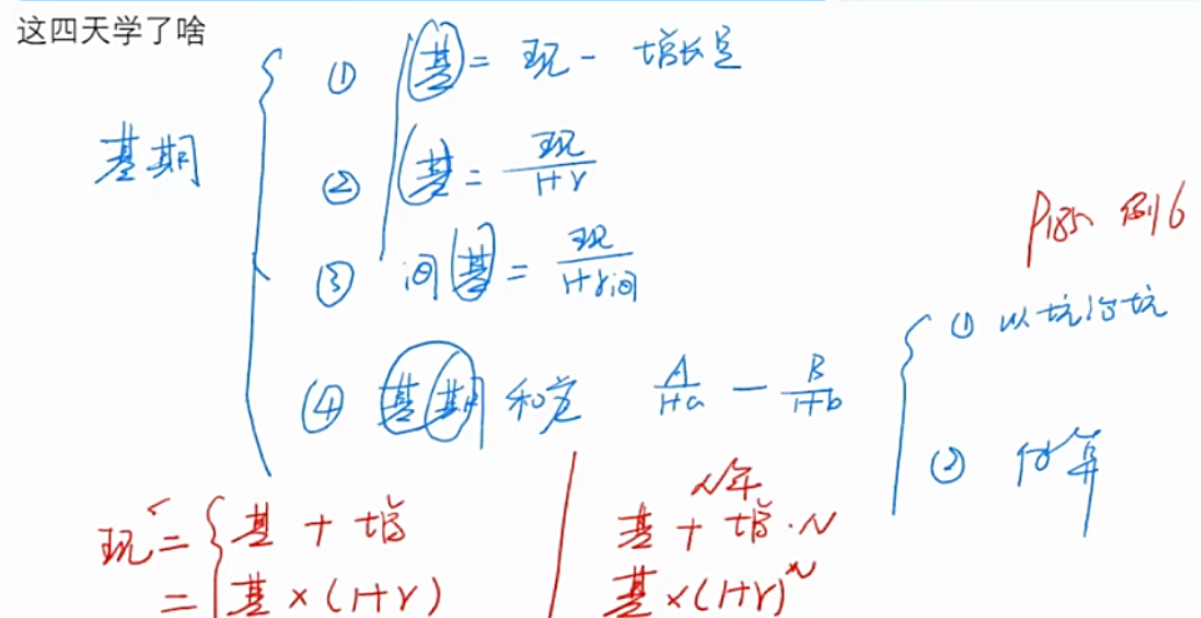 这四天学了啥
基期
① 基 = 现 - 增长量
② 基 = 现/1+r
③ 间基 = 现/1+r间
④ 基期和差 A/1+a - B/1+b
例6
① 以坑治坑
② 估算
现 = 基 + 增
= 基 × (1+r)
N年
基 + 增·N
基 × (1+r)^N